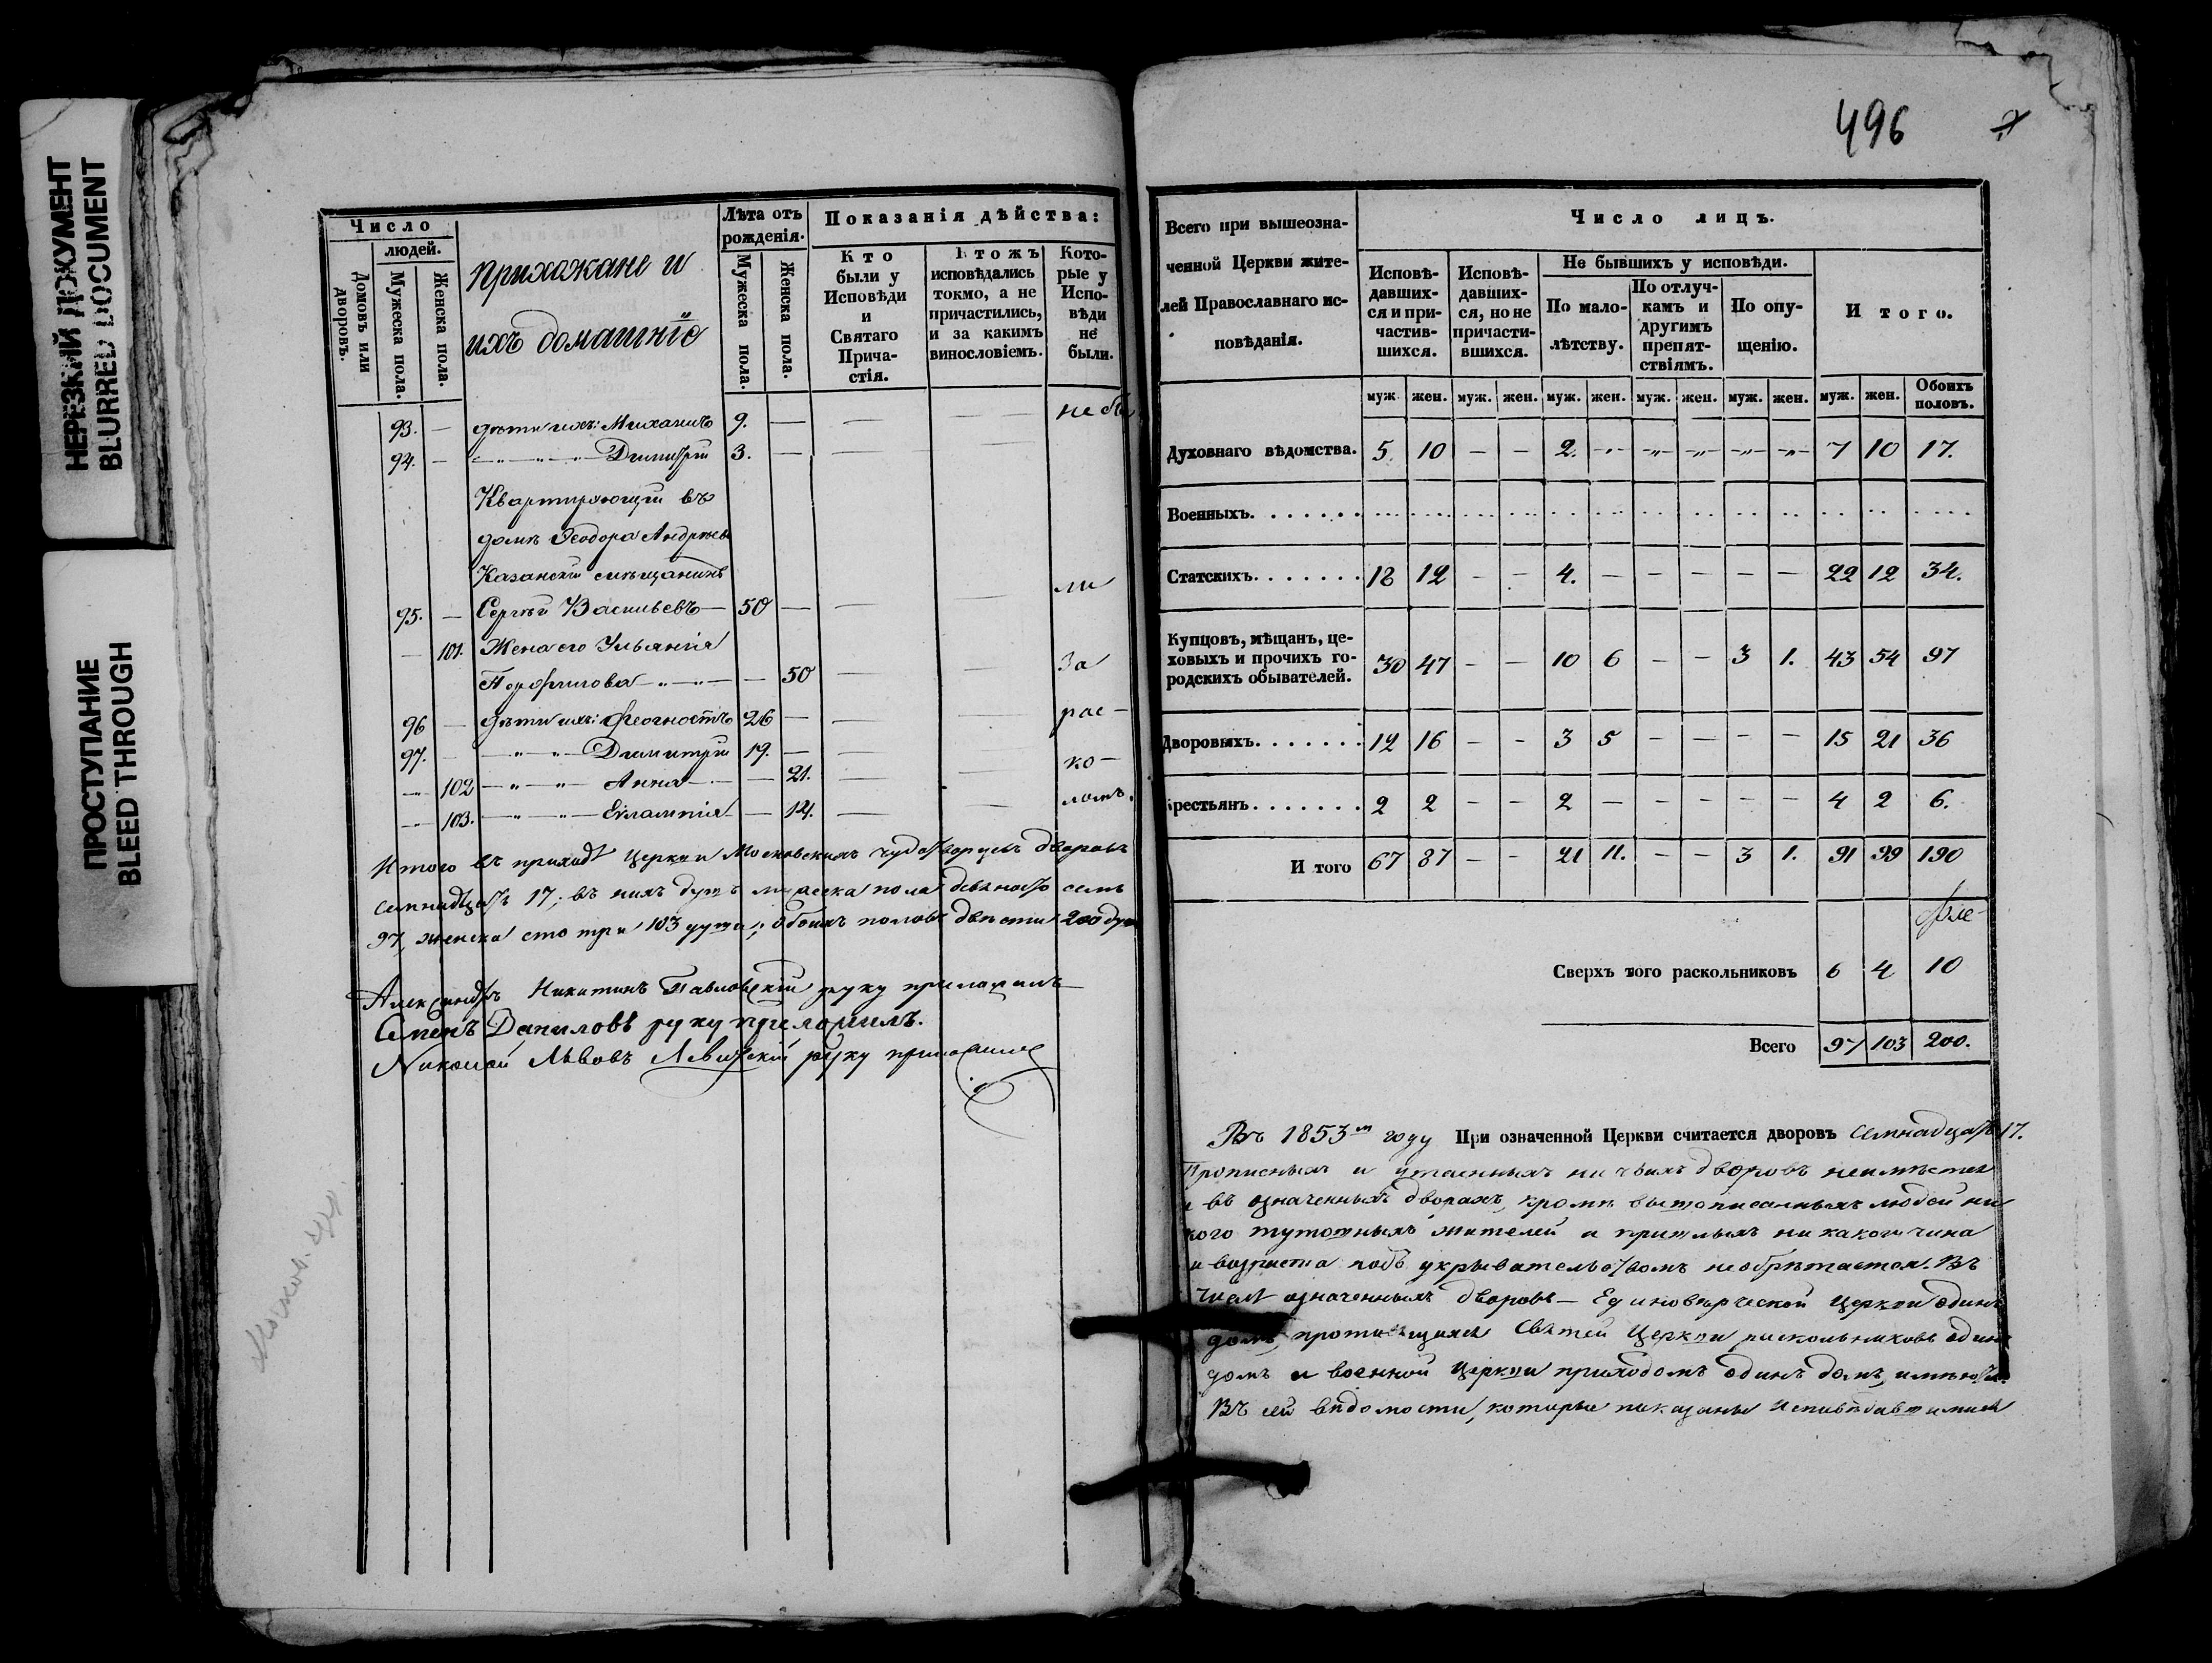 НЕРЕЗКИЙ ДОКУМЕНТ
BLURRED DOCUMENT
ПРОСТУПАНИЕ
BLEED THROUGH
Число
людей.
Домовъ или дворовъ.
Мужеска пола.
Женска пола.
Прихожане и
ихъ домашніе
Лѣта отъ рожденія.
Мужеска пола.
Женска пола.
Показанія дѣйства:
Кто были у Исповѣди и Святаго Прича-стія.
Ктожъ исповѣдались токмо, а не причастились, и за какимъ винословіемъ.
Кото-рые у Испо-вѣди не были.
93. — дѣти ихъ: Михаилъ 9. — — — не бы
94. — — " — " — Димитрій 3. — — —
Квартирующій въ
домѣ Ѳеодора Андреева
Казанскій мѣщанинъ
ли
95. — Сергѣй Васильевъ — 50 — — —
— 101. Жена его Ульянія
За
Порфирова — " — " — — 50 — —
96 — дѣти ихъ: Феогностъ 26 — — — рас-
97. — " — " — Димитрій 19. — — —
ко-
— 102 — " — " — Анна — — 21. — —
— 103. — " — " — Евлампія — — 14. — — ломъ.
Итого въ приходѣ Церкви Московскихъ чудотворцевъ дворовъ
семнадцать 17; въ нихъ душъ мужеска пола девяносто семь
97, женска сто три 103 души; обоихъ половъ двѣсти 200 душ
Александръ Никитинъ Павловскій руку приложилъ
Семенъ Даниловъ руку приложилъ.
Николай Львовъ руку приложилъ
496
Всего при вышеозна-
ченной Церкви жите-
лей Православнаго ис-
повѣданія.
Число лицъ.
Исповѣ-давших-ся и при-частив-шихся.
Исповѣ-давших-ся, но не причасти-вшихся.
Не бывшихъ у исповѣди.
По мало-лѣтству.
По отлуч-камъ и другимъ препят-ствіямъ.
По опу-щенію.
Итого.
муж. жен. муж. жен. муж. жен. муж. жен. муж. жен. муж. жен. Обоихъ половъ.
Духовнаго вѣдомства. 5. 10 — — 2. — — — — — 7 10 17.
Военныхъ. . . . . . .
Статскихъ. . . . . . . 18 12 — — 4. — — — — — 22 12 34.
Купцовъ, мѣщанъ, це-
ховыхъ и прочихъ го-
родскихъ обывателей. 30 47 — — 10 6 — — 3 1. 43 54 97
Дворовыхъ. . . . . . . 12 16 — — 3 5 — — — — 15 21 36
Крестьянъ. . . . . . . 2 2 — — 2 — — — — — 4 2 6.
И того 67 87 — — 21 11. — — 3 1. 91 99 190
Сверхъ того раскольниковъ 6 4 10
Всего 97 103 200.
Въ 1853м году При означенной Церкви считается дворовъ семнадцать 17.
Прописныхъ и утаенныхъ ни чьихъ дворовъ неимѣется
и въ означенныхъ дворахъ, кромѣ вышеписанныхъ людей ни
кого тутошныхъ жителей и пришлыхъ ни какого чина
и возраста подъ укрывательствомъ необрѣтается. Въ
числѣ означенныхъ дворовъ — Единовѣрческой Церкви одинъ
домъ, Святей Церкви раскольниковъ одинъ
домъ и военной Церкви приходомъ одинъ домъ,
Въ сей вѣдомости, которые показаны Исповѣдавшимися